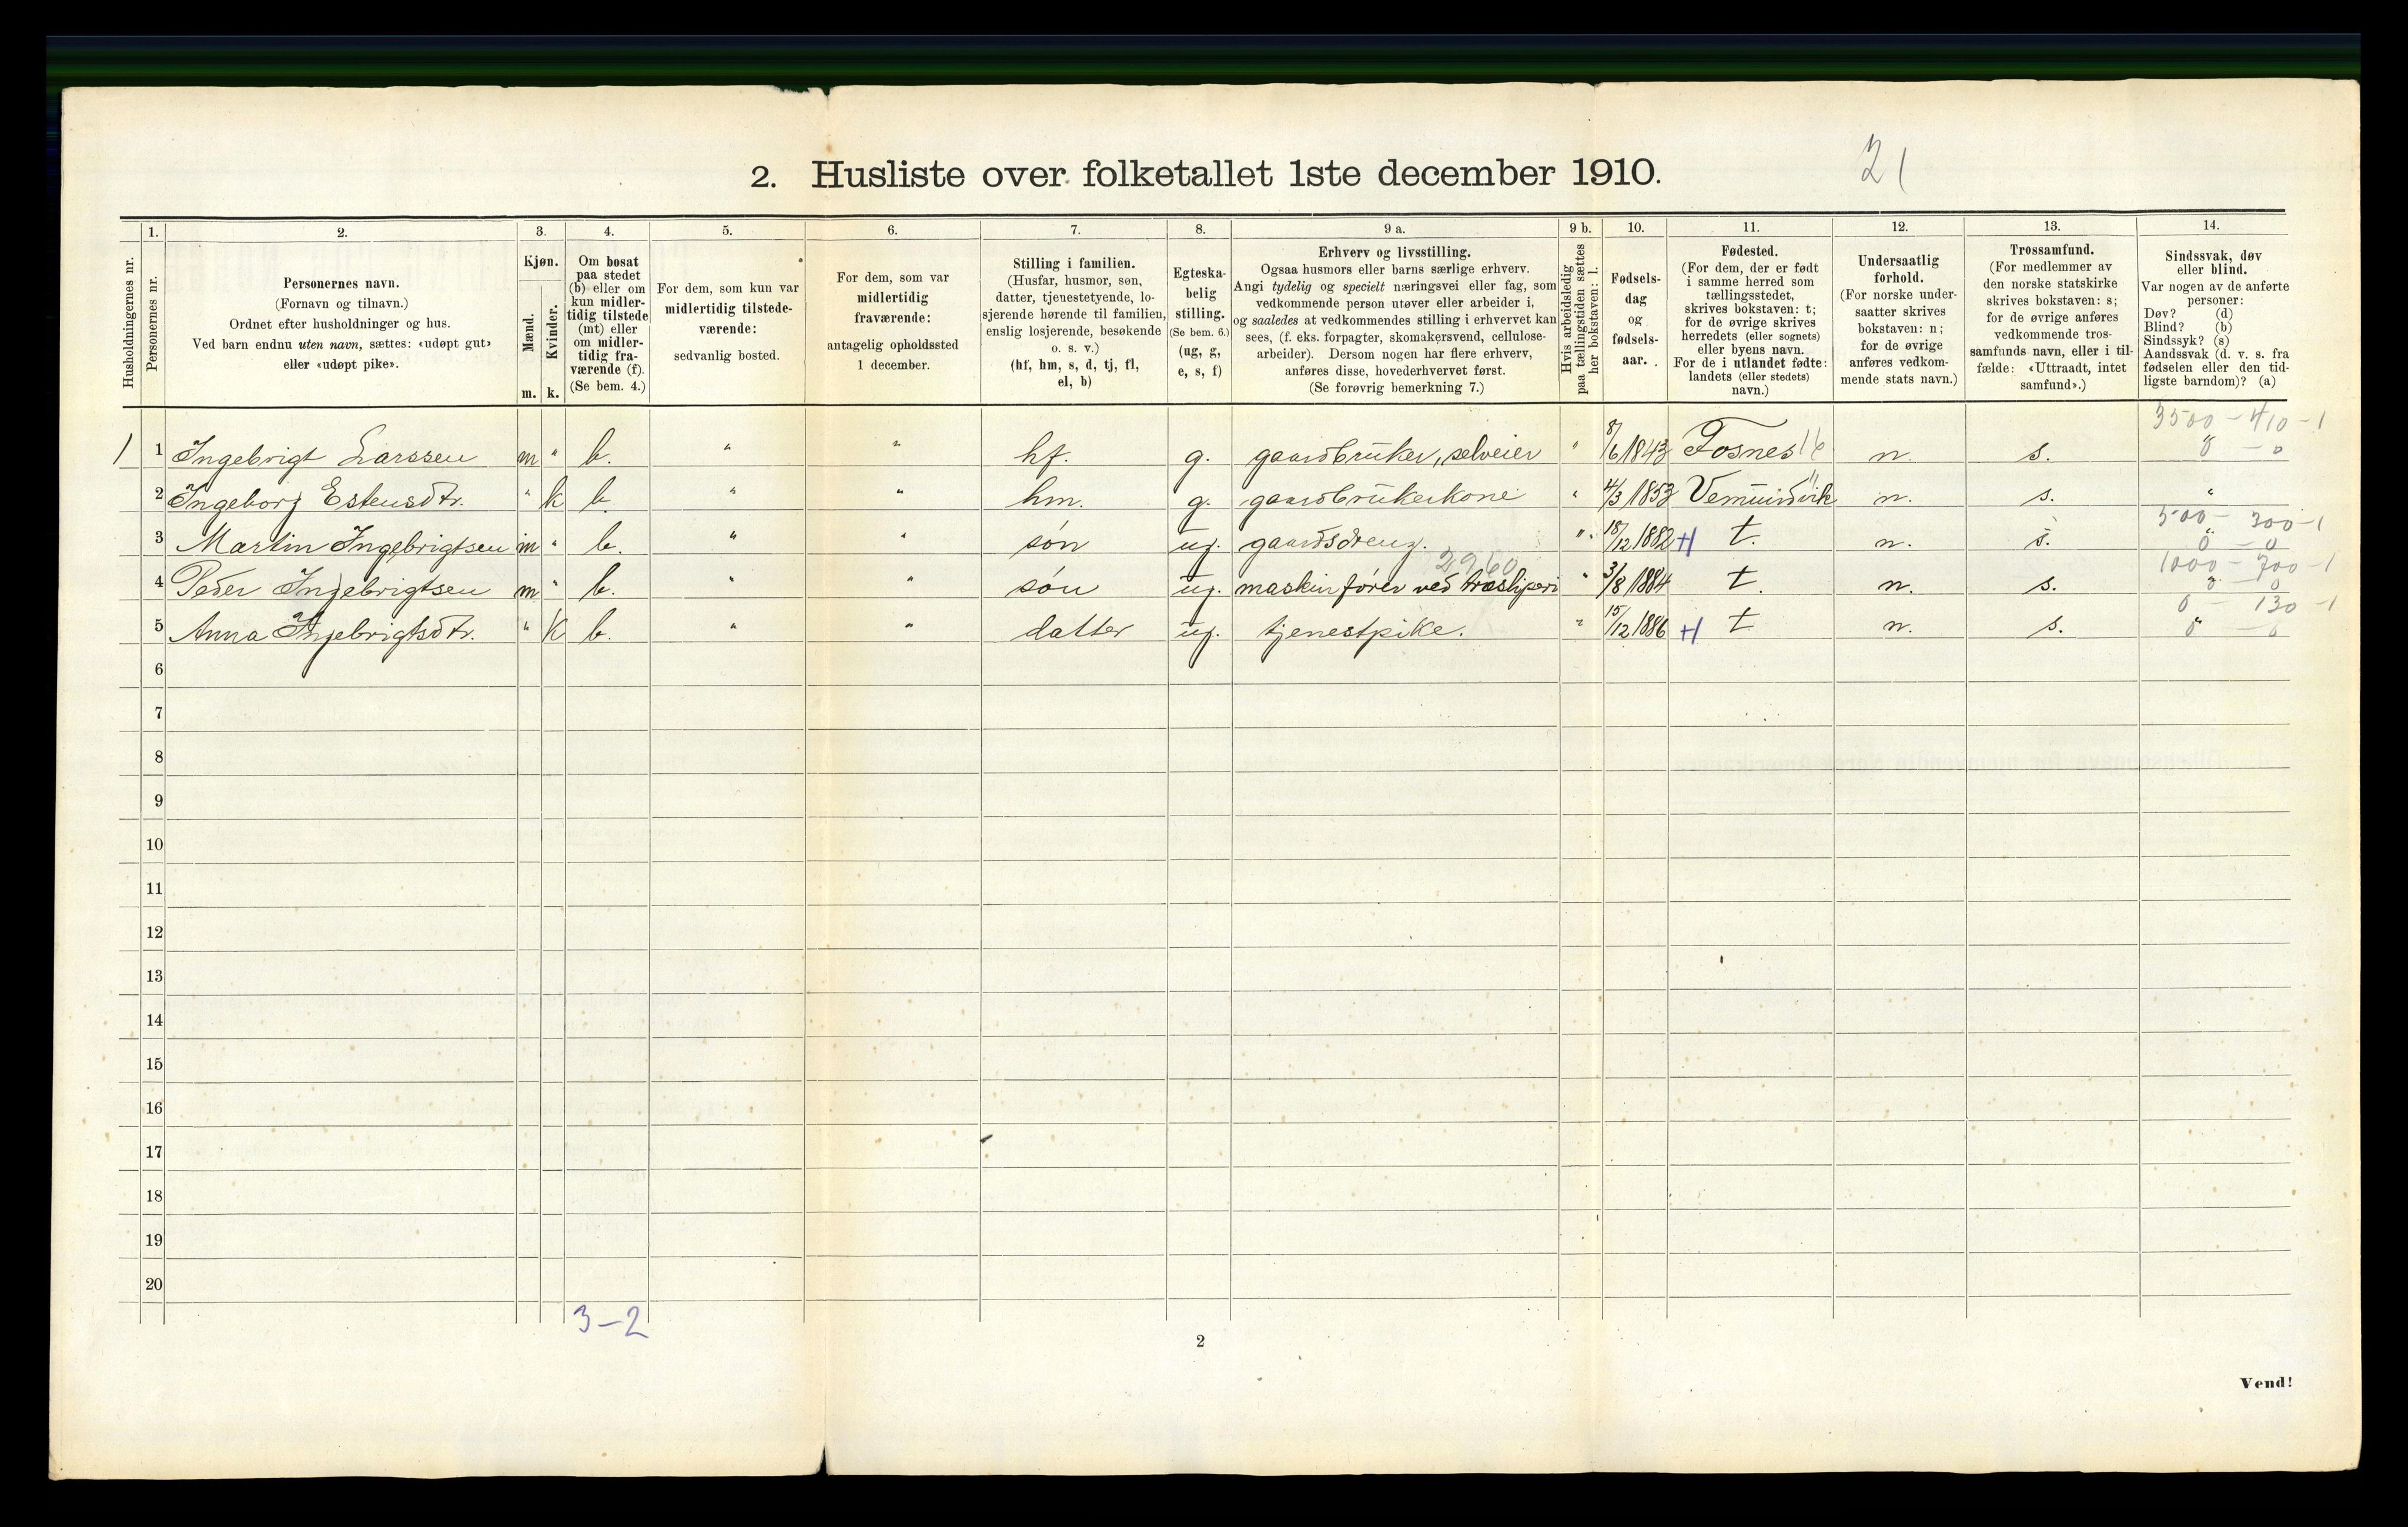 2. Husliste over folketallet 1ste december 1910.
21
1. 2. 3. 4. 5. 6. 7. 8. 9 a. 9 b. 10. 11. 12. 13. 14.
Husholdningernes nr.
Personernes nr.
Personernes navn.
(Fornavn og tilnavn.)
Ordnet efter husholdninger og hus.
Ved barn endnu uten navn, sættes: «udøpt gut»
eller «udøpt pike».
Kjøn.
Mænd.
Kvinder.
m. k.
Om bosat
paa stedet
(b) eller om
kun midler-
tidig tilstede
(mt) eller
om midler-
tidig fra-
værende (f).
(Se bem. 4.)
For dem, som kun var
midlertidig tilstede-
værende:
sedvanlig bosted.
For dem, som var
midlertidig
fraværende:
antagelig opholdssted
1 december.
Stilling i familien.
(Husfar, husmor, søn,
datter, tjenestetyende, lo-
sjerende hørende til familien,
enslig losjerende, besøkende
o. s. v.)
(hf, hm, s, d, tj, fl,
el, b)
Egteska-
belig
stilling.
(Se bem. 6.)
(ug, g,
e, s, f)
Erhverv og livsstilling.
Ogsaa husmors eller barns særlige erhverv.
Angi tydelig og specielt næringsvei eller fag, som
vedkommende person utøver eller arbeider i,
og saaledes at vedkommendes stilling i erhvervet kan
sees, (f. eks. forpagter, skomakersvend, cellulose-
arbeider). Dersom nogen har flere erhverv,
anføres disse, hovederhvervet først.
(Se forøvrig bemerkning 7.)
Hvis arbeidsledig
paa tællingstiden sættes
her bokstaven: l.
Fødsels-
dag
og
fødsels-
aar.
Fødested.
(For dem, der er født
i samme herred som
tællingsstedet,
skrives bokstaven: t;
for de øvrige skrives
herredets (eller sognets)
eller byens navn.
For de i utlandet fødte:
landets (eller stedets)
navn.)
Undersaatlig
forhold.
(For norske under-
saatter skrives
bokstaven: n;
for de øvrige
anføres vedkom-
mende stats navn.)
Trossamfund.
(For medlemmer av
den norske statskirke
skrives bokstaven: s;
for de øvrige anføres
vedkommende tros-
samfunds navn, eller i til-
fælde: «Uttraadt, intet
samfund».)
Sindssvak, døv
eller blind.
Var nogen av de anførte
personer:
Døv? (d)
Blind? (b)
Sindssyk? (s)
Aandssvak (d. v. s. fra
fødselen eller den tid-
ligste barndom)? (a)
3500 - 410 - 1
1 1 Ingebrigt Larssen m " b. " " hf. g. gaardbruker, selveier " 8/6 1843 Fosnes 16 n. s. " 0 - 0
2 Ingeborg Estensdtr. " k b. " " hm. g. gaardbrukerkone " 4/3 1853 Vemundvik 11 n. s. "
500 - 300 - 1
3 Martin Ingebrigtsen m " b. " " søn ug. gaardsdreng. " 18/12 1882 + t. n. s. " 0 - 0
2960
1000 - 700 - 1
4 Peder Ingebrigtsen m " b. " " søn ug. maskinfører ved træsliperi " 3/8 1884 t. n. s. " 0 - 0
0 - 130 - 1
5 Anna Ingebrigtsdtr. " k b. " " datter ug. tjenestpike. " 15/12 1886 + t n. s. " 0 - 0
6
7
8
9
10
11
12
13
14
15
16
17
18
19
20
3-2
2
Vend!